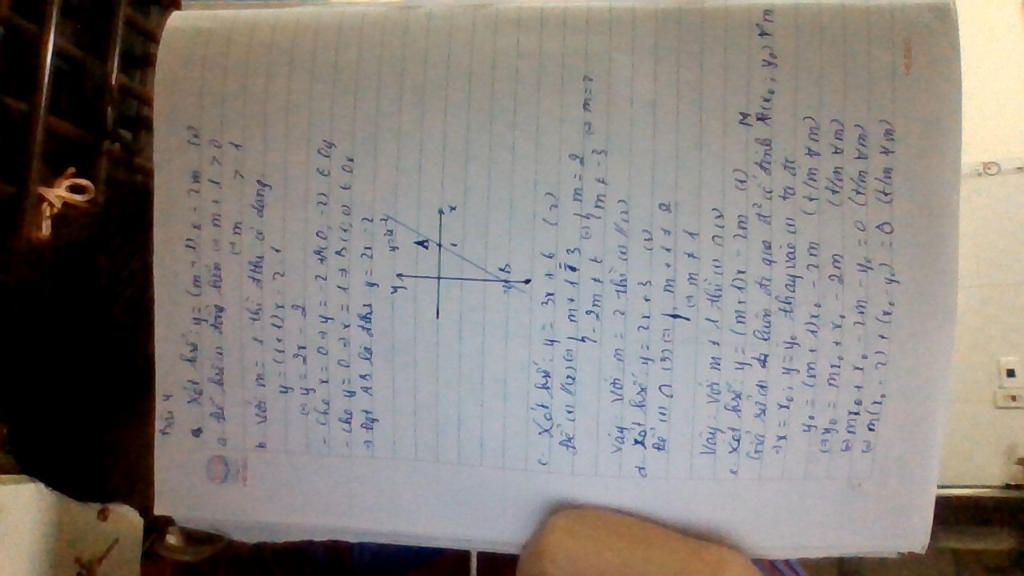 Bài 4
a. Xét hsố: y = (m+1)x - 2m (1)
a. Để hsố (1) đồng biến ⇔ m + 1 > 0
⇔ m > 1
b. Với m = 1 thì đths có dạng
y = (1+1)x - 2.1
⇔ y = 2x - 2
- Cho x = 0 ⇒ y = -2 ⇒ A(0, -2) ∈ Oy
- Cho y = 0 ⇒ x = 1 ⇒ B(1, 0) ∈ Ox
⇒ Đgt AB là đths y = 2x - 2
y
y=2x-2
A
x
1
B
c - Xét hsố: y = 3x + 6 (2)
Để (1) // (2) ⇔ { m + 1 = 3 ⇔ { m = 2
-2m ≠ 6 m ≠ -3 ⇔ m = 2
Vậy với m = 2 thì (1) // (2)
d. Xét hsố y = 2x + 3 (3)
Để (1) ∩ (3) ⇔ m + 1 ≠ 2
⇔ m ≠ 1
Vậy với m ≠ 1 thì (1) ∩ (3)
e. Xét hsố: y = (m+1)x - 2m (1)
Giả sử (1) luôn đi qua đ² cố định M(x₀; y₀) ∀ m
⇒ x = x₀; y = y₀ thay vào (1) ta đc
y₀ = (m+1)x₀ - 2m (t/m ∀ m)
⇔ y₀ = mx₀ + x₀ - 2m (t/m ∀ m)
⇔ mx₀ + x₀ - 2m - y₀ = 0 (t/m ∀ m)
⇔ m(x₀ - 2) + (x₀ - y₀) = 0 (t/m ∀ m)